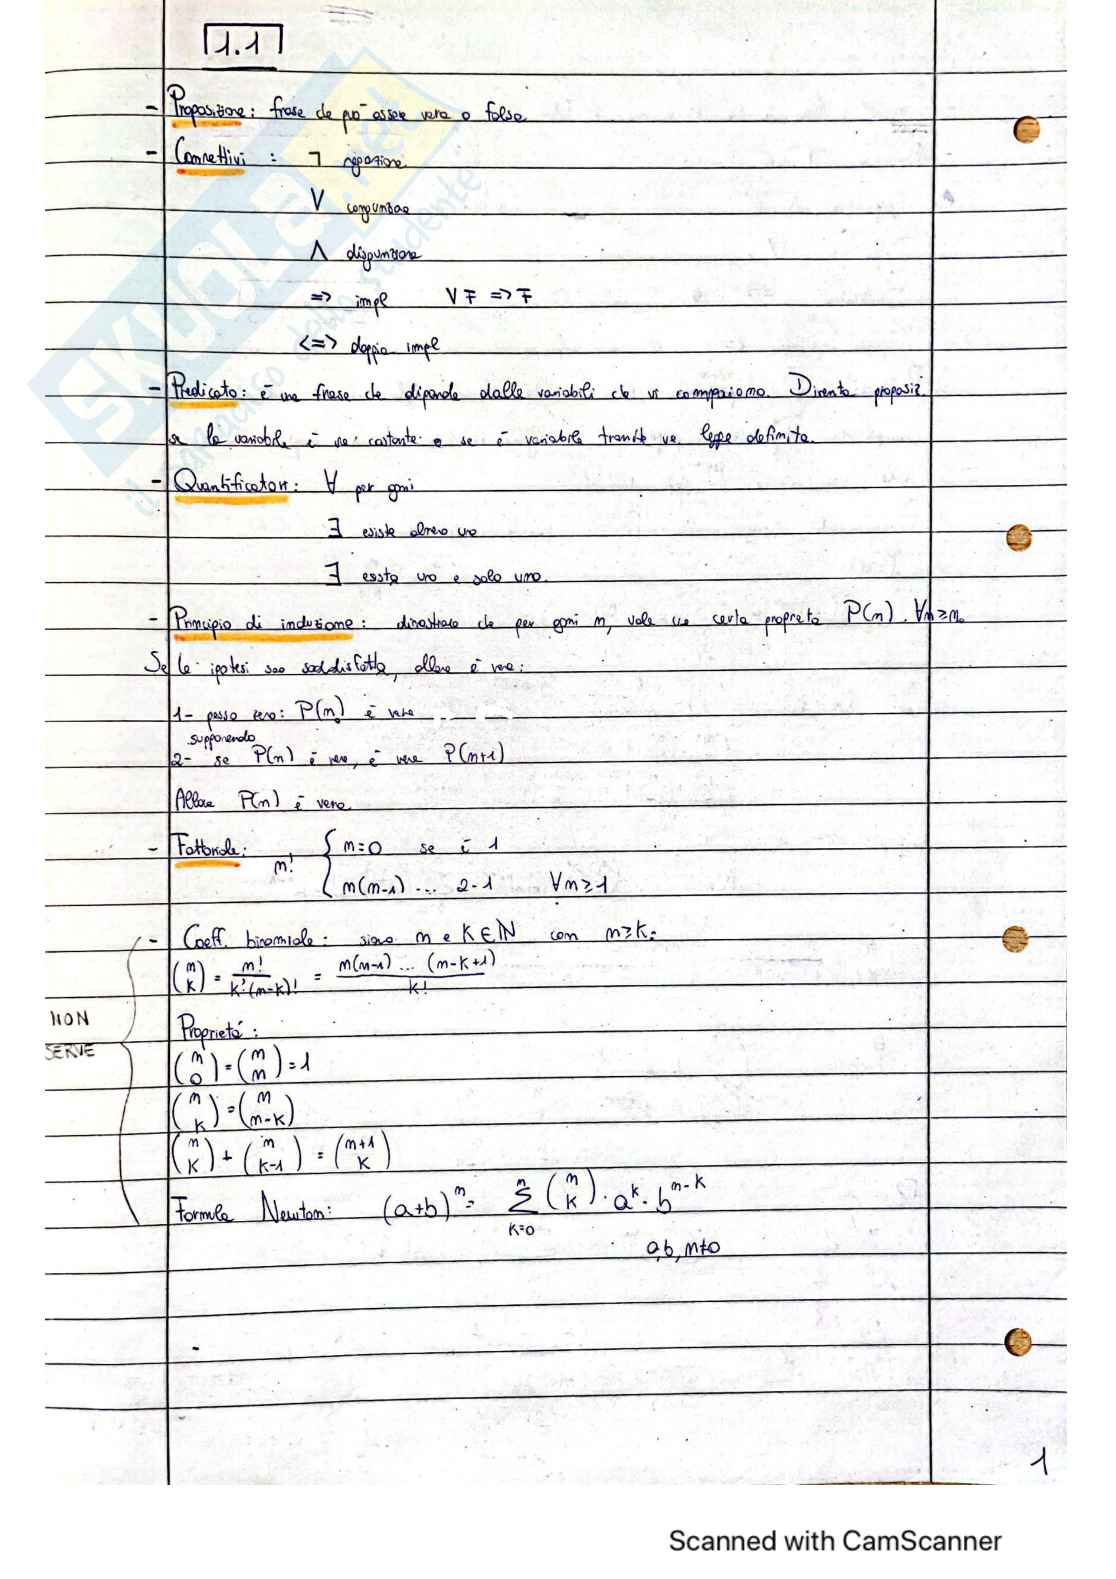 1.1
- Proposizione: frase che può essere vera o falsa
- Connettivi: ¬ negazione
∨ congiunzione
∧ disgiunzione
=> impl V F => F
<=> doppia impl
- Predicato: è una frase che dipende dalle variabili che vi compaiono. Diventa proposiz.
se la variabile è costante o se è variabile tramite legge definita.
- Quantificatori: ∀ per ogni
∃ esiste almeno uno
∃ esiste uno e solo uno.
- Principio di induzione: dimostrare che per ogni n, vale una certa proprietà P(n). ∀n≥n₀
Se le ipotesi sono soddisfatte, allora è vera:
1- passo zero: P(n₀) è vera
supponendo
2- se P(n) è vera, è vera P(n+1)
Allora P(n) è vera.
- Fattoriale: n! { n=0 se è 1
n(n-1) ... 2·1 ∀n≥1
- Coeff. binomiale: siano n e K∈ℕ con n≥K:
(n K) = n! / K!(n-K)! = n(n-1) ... (n-K+1) / K!
NON
SERVE
Proprietà:
(n 0) = (n n) = 1
(n K) = (n n-K)
(n K) + (n K-1) = (n+1 K)
Formula Newton: (a+b)ⁿ = Σ K=0 n (n K) · aᴷ · bⁿ⁻ᴷ
a,b,n≠0
1
SKUOLA.net
Scanned with CamScanner